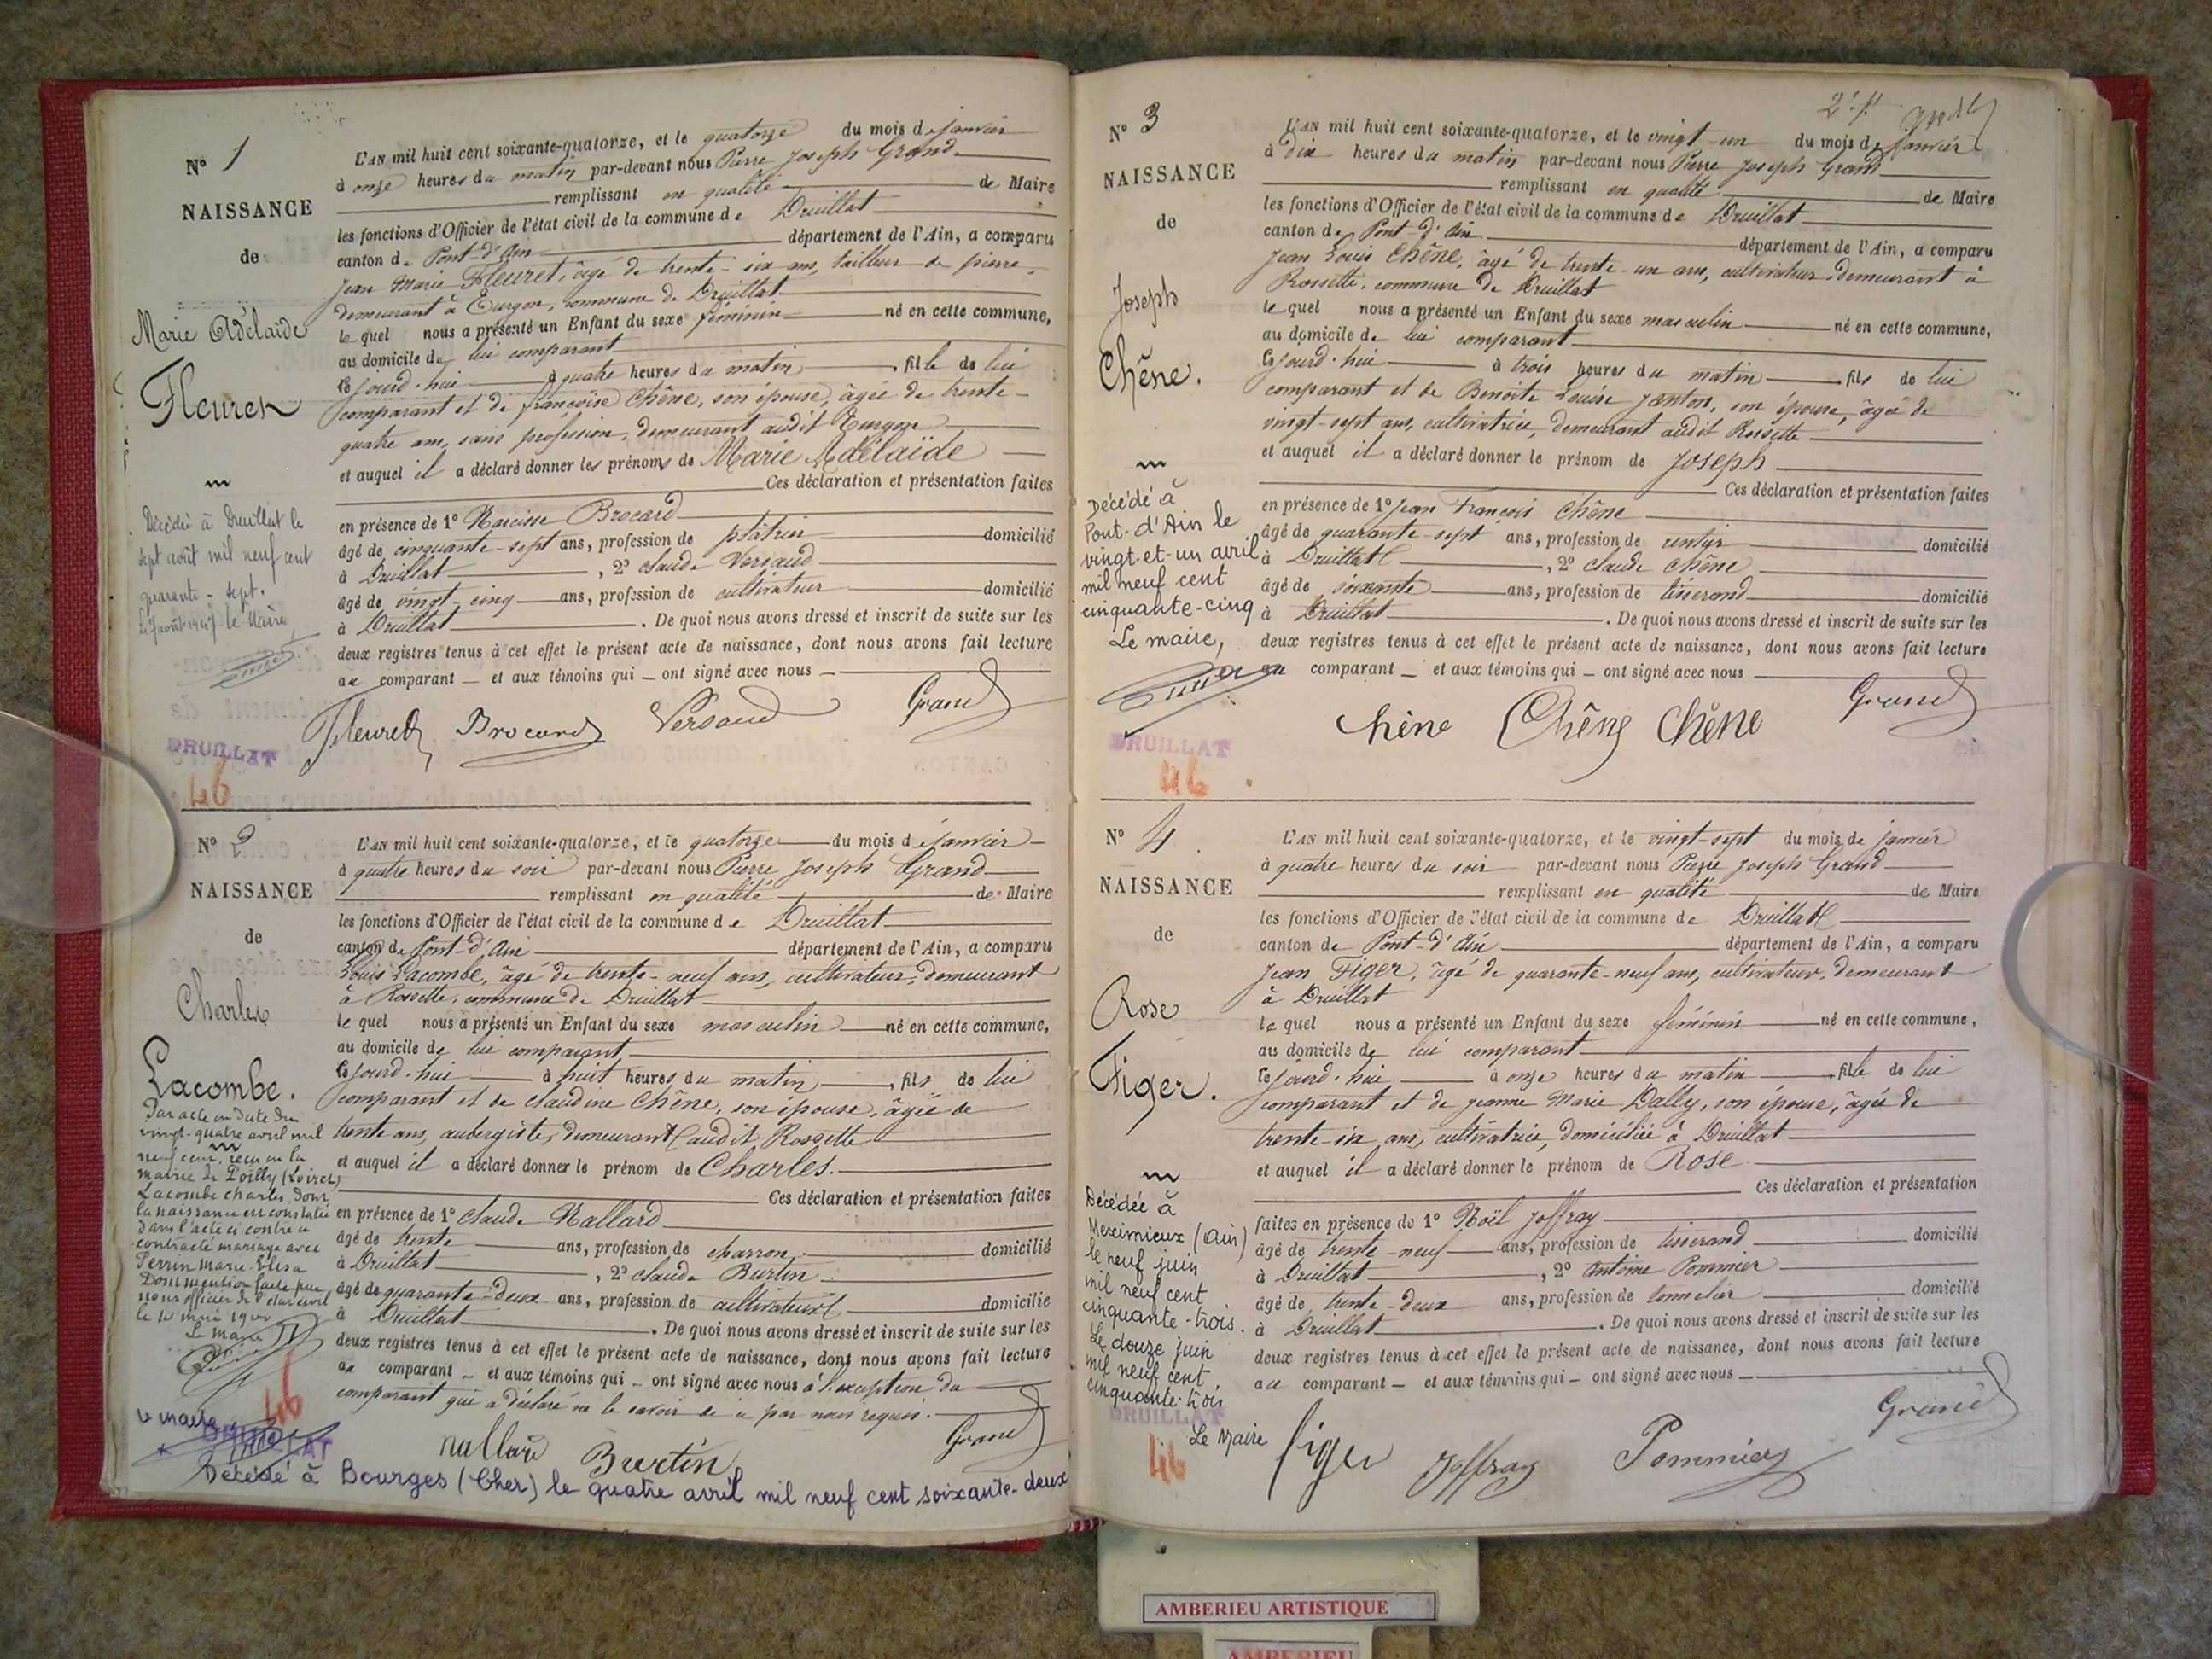 N° 1
NAISSANCE
de
Marie Adélaïde
Fleuret
Décédée à Druillat le
sept août mil neuf cent
quarante-sept.
le 7 août 1947 le Maire,
DRUILLAT
46
L'AN mil huit cent soixante-quatorze, et le quatorze du mois de janvier
à onze heures du matin par-devant nous Pierre Joseph Grand
remplissant en qualité de Maire
les fonctions d'Officier de l'état civil de la commune de Druillat
canton de Pont-d'Ain département de l'Ain, a comparu
Jean Marie Fleuret, âgé de trente-six ans, tailleur de pierre,
demeurant à Turgon, commune de Druillat
le quel nous a présenté un Enfant du sexe féminin né en cette commune,
au domicile de lui comparant
ce jourd'hui à quatre heures du matin, fille de lui
comparant et de françoise Chêne, son épouse, âgée de trente-
quatre ans, sans profession, demeurant audit Turgon
et auquel il a déclaré donner les prénoms de Marie Adélaïde
Ces déclaration et présentation faites
en présence de 1° Narcisse Brocard
âgé de cinquante-sept ans, profession de plâtrier domicilié
à Druillat, 2° claude Versaud
âgé de vingt-cinq ans, profession de cultivateur domicilié
à Druillat. De quoi nous avons dressé et inscrit de suite sur les
deux registres tenus à cet effet le présent acte de naissance, dont nous avons fait lecture
au comparant et aux témoins qui ont signé avec nous
Fleuret Brocard Versaud Grand
N° 2
NAISSANCE
de
Charles
Lacombe.
Par acte en date du
vingt-quatre avril mil
neuf cent, reçu en la
mairie de Poilly (Loiret)
Lacombe charles dont
la naissance est constatée
dans l'acte ci contre a
contracté mariage avec
Perrin Marie-Elisa
Dont mention faite par
nous officier de l'état civil
le 10 mai 1900
Le maire
46
Le maire
DRUILLAT
L'AN mil huit cent soixante-quatorze, et le quatorze du mois de janvier
à quatre heures du soir par-devant nous Pierre Joseph Grand
remplissant en qualité de Maire
les fonctions d'Officier de l'état civil de la commune de Druillat
canton de Pont-d'Ain département de l'Ain, a comparu
Louis Lacombe, âgé de trente-neuf ans, cultivateur, demeurant
à Rossette, commune de Druillat
le quel nous a présenté un Enfant du sexe masculin né en cette commune,
au domicile de lui comparant
ce jourd'hui à huit heures du matin, fils de lui
comparant et de claudine Chêne, son épouse, âgée de
trente ans, aubergiste, demeurant audit Rossette
et auquel il a déclaré donner le prénom de Charles.
Ces déclaration et présentation faites
en présence de 1° claude Nallard
âgé de trente ans, profession de charron domicilié
à Druillat, 2° claude Burtin
âgé de quarante-deux ans, profession de cultivateur domicilié
à Druillat. De quoi nous avons dressé et inscrit de suite sur les
deux registres tenus à cet effet le présent acte de naissance, dont nous avons fait lecture
au comparant et aux témoins qui ont signé avec nous à l'exception du
comparant qui a déclaré ne le savoir de ce par nous requis.
nallard Burtin Grand
Décédé à Bourges (Cher) le quatre avril mil neuf cent soixante-deux
N° 3
NAISSANCE
de
Joseph
Chêne.
Décédé à
Pont-d'Ain le
vingt-et-un avril
mil neuf cent
cinquante-cinq
Le maire,
DRUILLAT
46
L'AN mil huit cent soixante-quatorze, et le vingt-un du mois de janvier
à dix heures du matin par-devant nous Pierre Joseph Grand
remplissant en qualité de Maire
les fonctions d'Officier de l'état civil de la commune de Druillat
canton de Pont-d'Ain département de l'Ain, a comparu
Jean Louis Chêne, âgé de trente-un ans, cultivateur demeurant à
Rossette, commune de Druillat
le quel nous a présenté un Enfant du sexe masculin né en cette commune,
au domicile de lui comparant
ce jourd'hui à trois heures du matin fils de lui
comparant et de Benoite Louise Janton, son épouse, âgée de
vingt-sept ans, cultivatrice, demeurant audit Rossette
et auquel il a déclaré donner le prénom de Joseph
Ces déclaration et présentation faites
en présence de 1° Jean François Chêne
âgé de quarante-sept ans, profession de rentier domicilié
à Druillat, 2° claude Chêne
âgé de soixante ans, profession de tisserand domicilié
à Druillat. De quoi nous avons dressé et inscrit de suite sur les
deux registres tenus à cet effet le présent acte de naissance, dont nous avons fait lecture
au comparant et aux témoins qui ont signé avec nous
chêne Chêne Chêne Grand
N° 4
NAISSANCE
de
Rose
Figer.
Décédée à
Meximieux (Ain)
le neuf juin
mil neuf cent
cinquante-trois.
Le douze juin
mil neuf cent
cinquante-trois
DRUILLAT
Le Maire
46
L'AN mil huit cent soixante-quatorze, et le vingt-sept du mois de janvier
à quatre heures du soir par-devant nous Pierre Joseph Grand
remplissant en qualité de Maire
les fonctions d'Officier de l'état civil de la commune de Druillat
canton de Pont-d'Ain département de l'Ain, a comparu
Jean Figer, âgé de quarante-neuf ans, cultivateur, demeurant
à Druillat
le quel nous a présenté un Enfant du sexe féminin né en cette commune,
au domicile de lui comparant
ce jourd'hui à onze heures du matin fille de lui
comparant et de jeanne Marie Dally, son épouse, âgée de
trente-six ans, cultivatrice, domiciliée à Druillat
et auquel il a déclaré donner le prénom de Rose
Ces déclaration et présentation
faites en présence de 1° Noël Joffray
âgé de trente-neuf ans, profession de tisserand domicilié
à Druillat, 2° Antoine Pommier
âgé de trente-deux ans, profession de tonnelier domicilié
à Druillat. De quoi nous avons dressé et inscrit de suite sur les
deux registres tenus à cet effet le présent acte de naissance, dont nous avons fait lecture
au comparant et aux témoins qui ont signé avec nous
figer Joffray Pommier Grand
AMBERIEU ARTISTIQUE
AMBERIEU